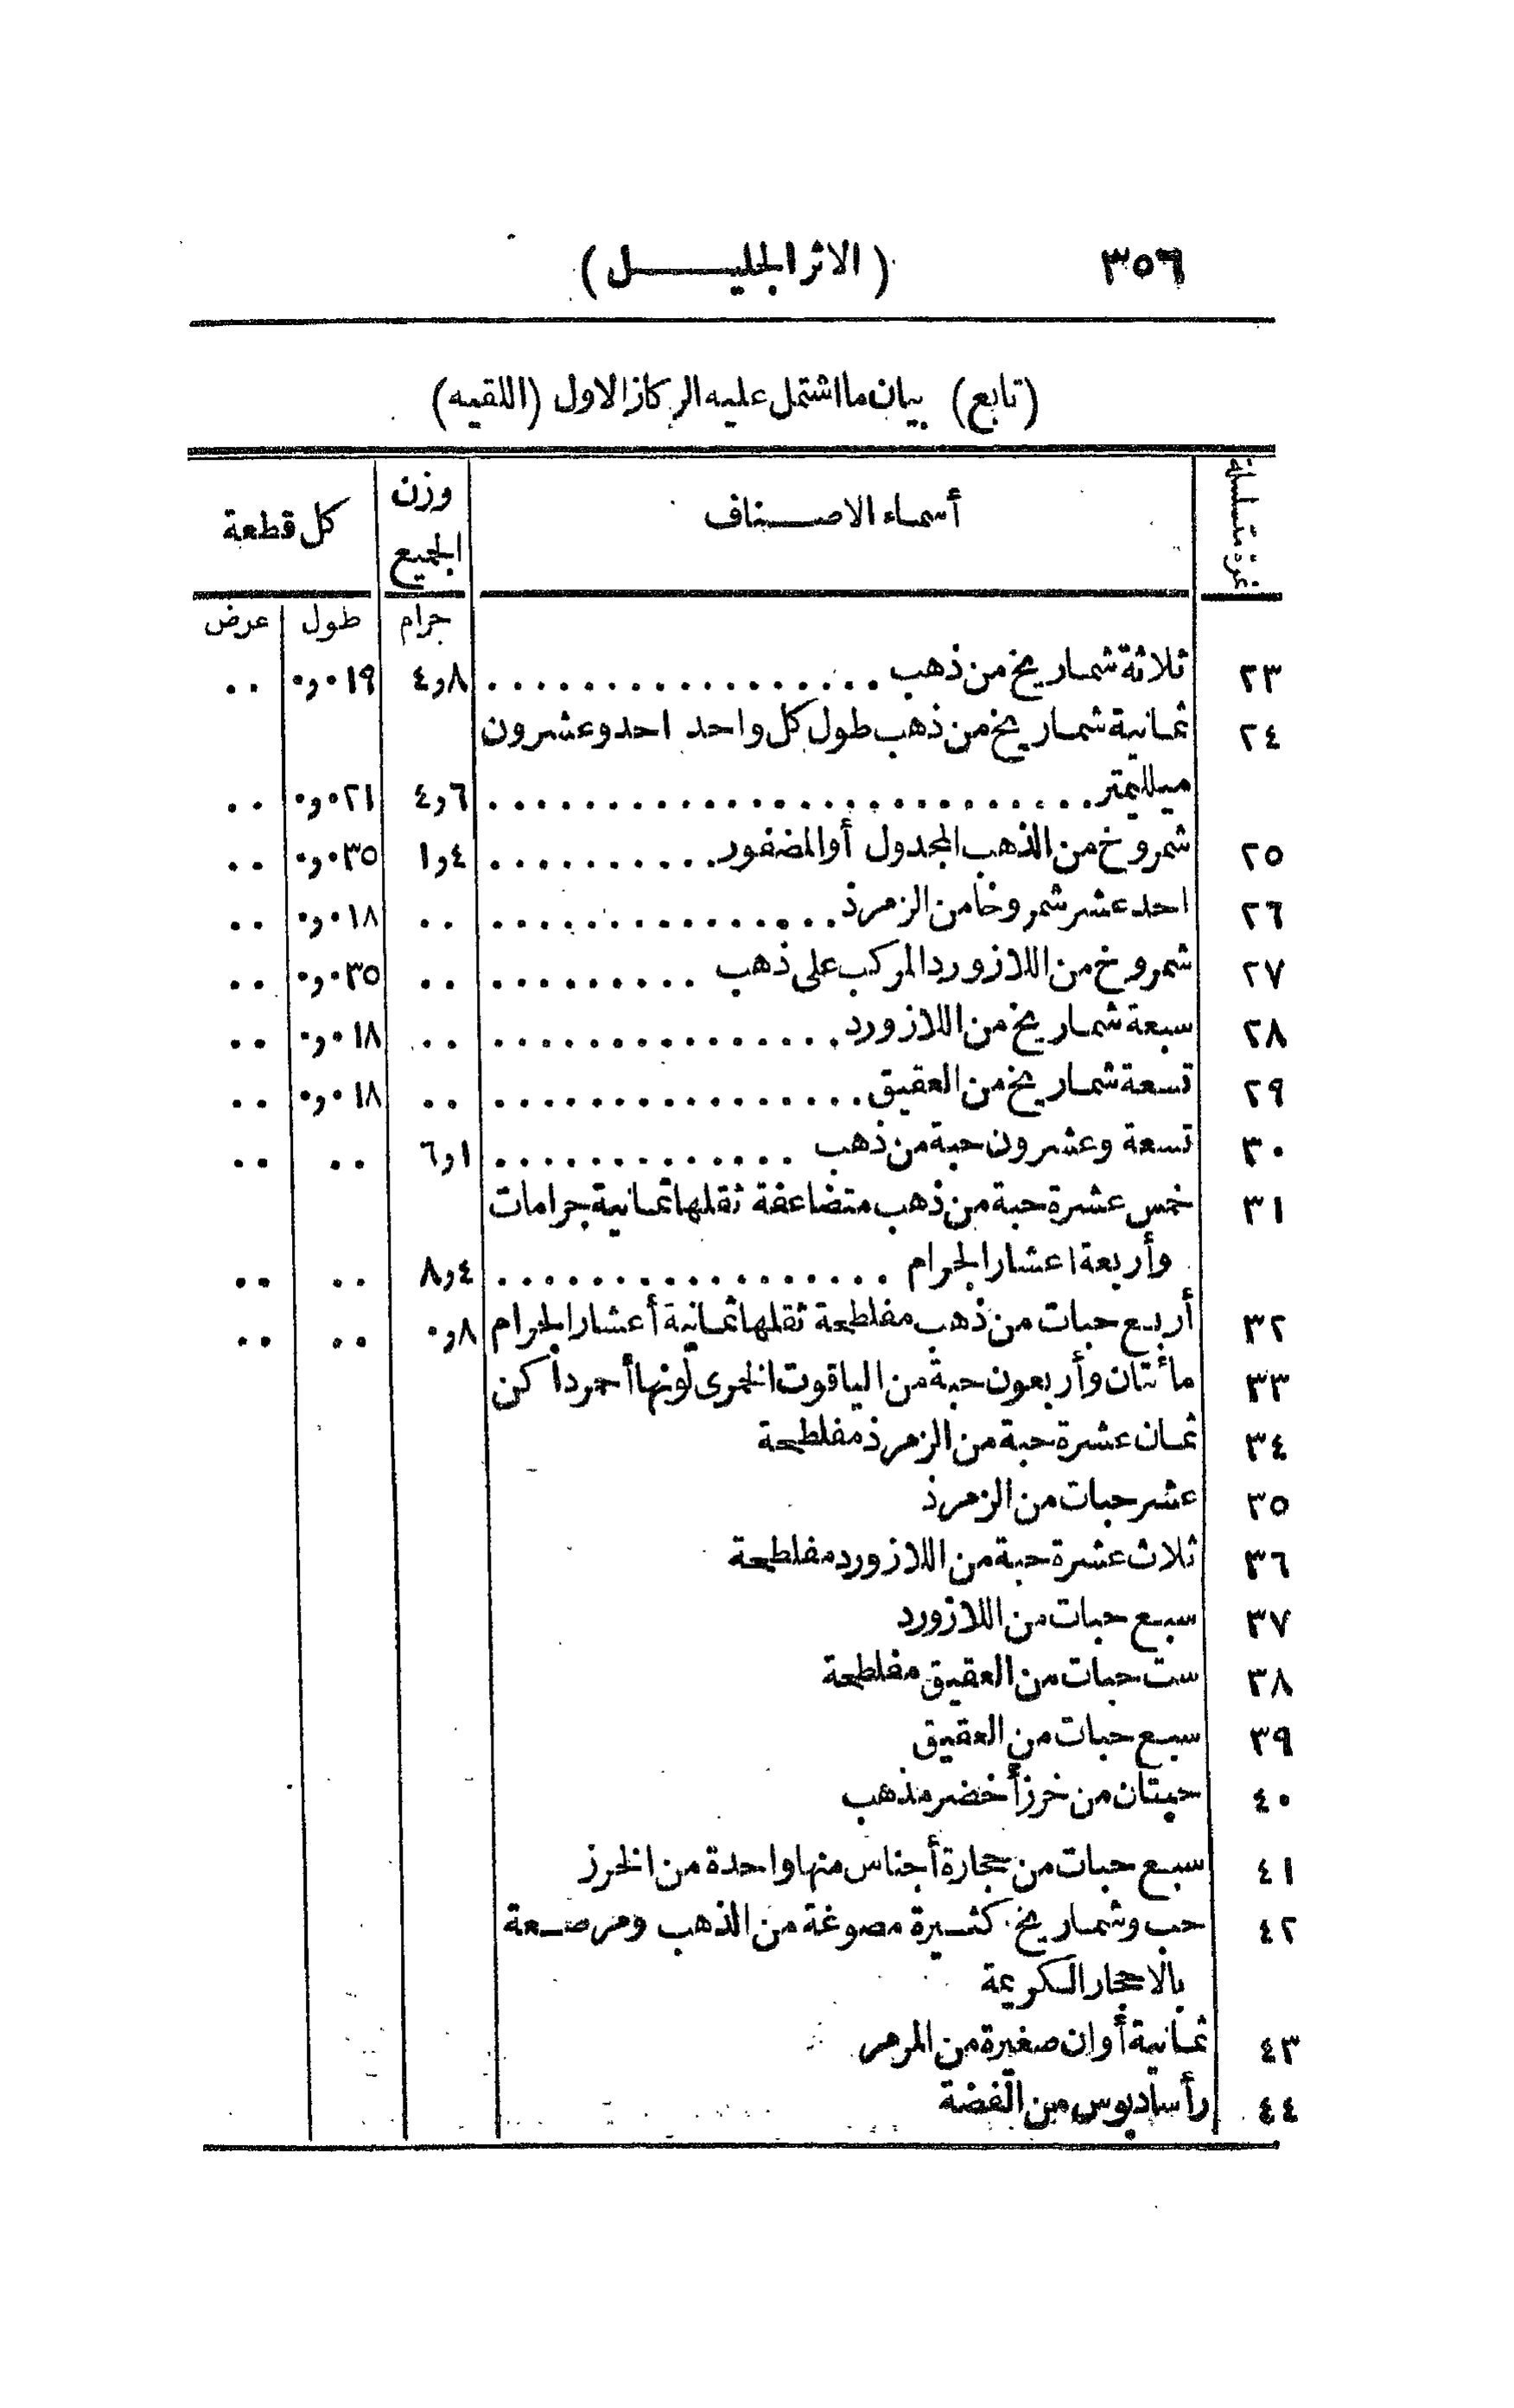 ٣٥٦ (الاثر الجليل)
(تابع) بيان ما اشتمل عليه الركاز الاول (اللقيه)
نمرة متسلسلة أسماء الاصناف وزن الجميع كل قطعة
جرام طول عرض
٢٣ ثلاثة شماريخ من ذهب .................. ٤٫٨ ٠٫٠١٩ ..
٢٤ ثمانية شماريخ من ذهب طول كل واحد احد وعشرون
ميلليمتر .......................... ٤٫٦ ٠٫٠٢١ ..
٢٥ شمروخ من الذهب المجدول أو المضفور .......... ١٫٤ ٠٫٠٣٥ ..
٢٦ احد عشر شمروخا من الزمرذ ............... .. ٠٫٠١٨ ..
٢٧ شمروخ من اللازورد المركب على ذهب ......... .. ٠٫٠٣٥ ..
٢٨ سبعة شماريخ من اللازورد ............... .. ٠٫٠١٨ ..
٢٩ تسعة شماريخ من العقيق ................ .. ٠٫٠١٨ ..
٣٠ تسعة وعشرون حبة من ذهب ............. ٦٫١ .. ..
٣١ خمس عشرة حبة من ذهب متضاعفة ثقلها ثمانية جرامات
وأربعة اعشار الجرام ................. ٨٫٤ .. ..
٣٢ أربع حبات من ذهب مفلطحة ثقلها ثمانية أعشار الجرام ٠٫٨ .. ..
٣٣ مائتان وأربعون حبة من الياقوت الخمرى لونها أحمر داكن
٣٤ ثمان عشرة حبة من الزمرذ مفلطحة
٣٥ عشر حبات من الزمرذ
٣٦ ثلاث عشرة حبة من اللازورد مفلطحة
٣٧ سبع حبات من اللازورد
٣٨ ست حبات من العقيق مفلطحة
٣٩ سبع حبات من العقيق
٤٠ حبتان من خرز أخضر مذهب
٤١ سبع حبات من حجارة أجناس منها واحدة من الخرز
٤٢ حب وشماريخ كثيرة مصوغة من الذهب ومرصعة
بالاحجار الكريمة
٤٣ ثمانية أوان صغيرة من المرمر
٤٤ رأسا دبوس من الفضة